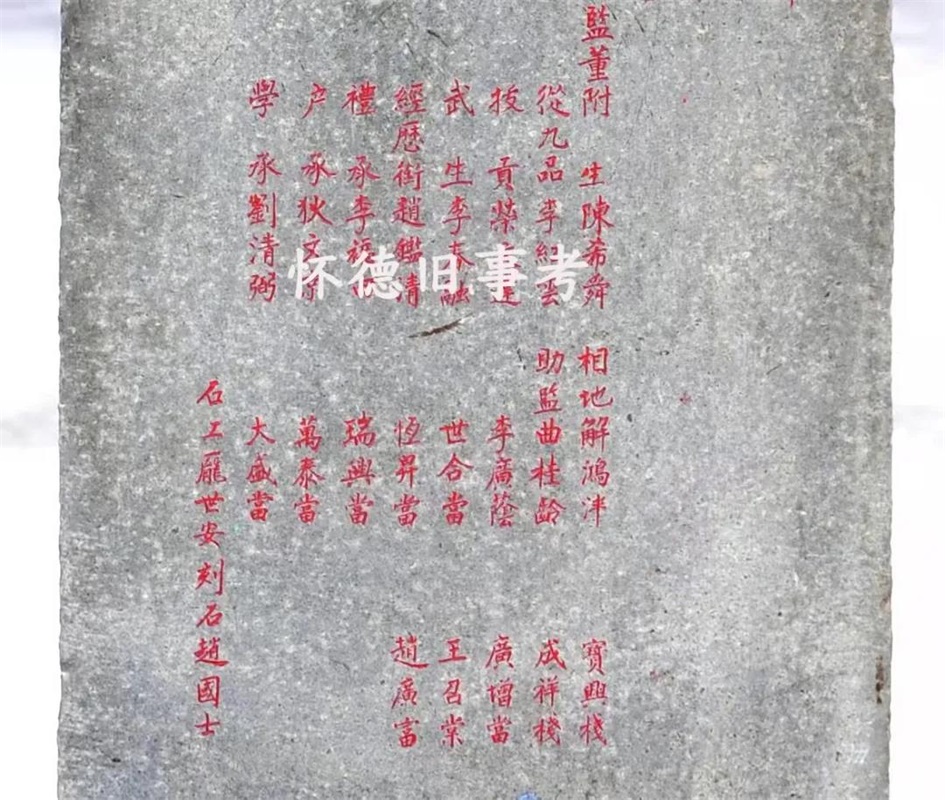 監董附 生陳希舜 相地解鴻泮 寶興棧
從九品李紹雲 助監曲桂齡 成祥棧
拔 貢榮 達 李廣蔭 廣增當
武 生李 融 世合當 王召棠
經歷銜趙鑑清 恆昇當 趙廣富
禮 承李 瑞興當
户 承狄文 萬泰當
學 承劉清弼 大盛當
石工龐世安刻石趙國士
怀德旧事考